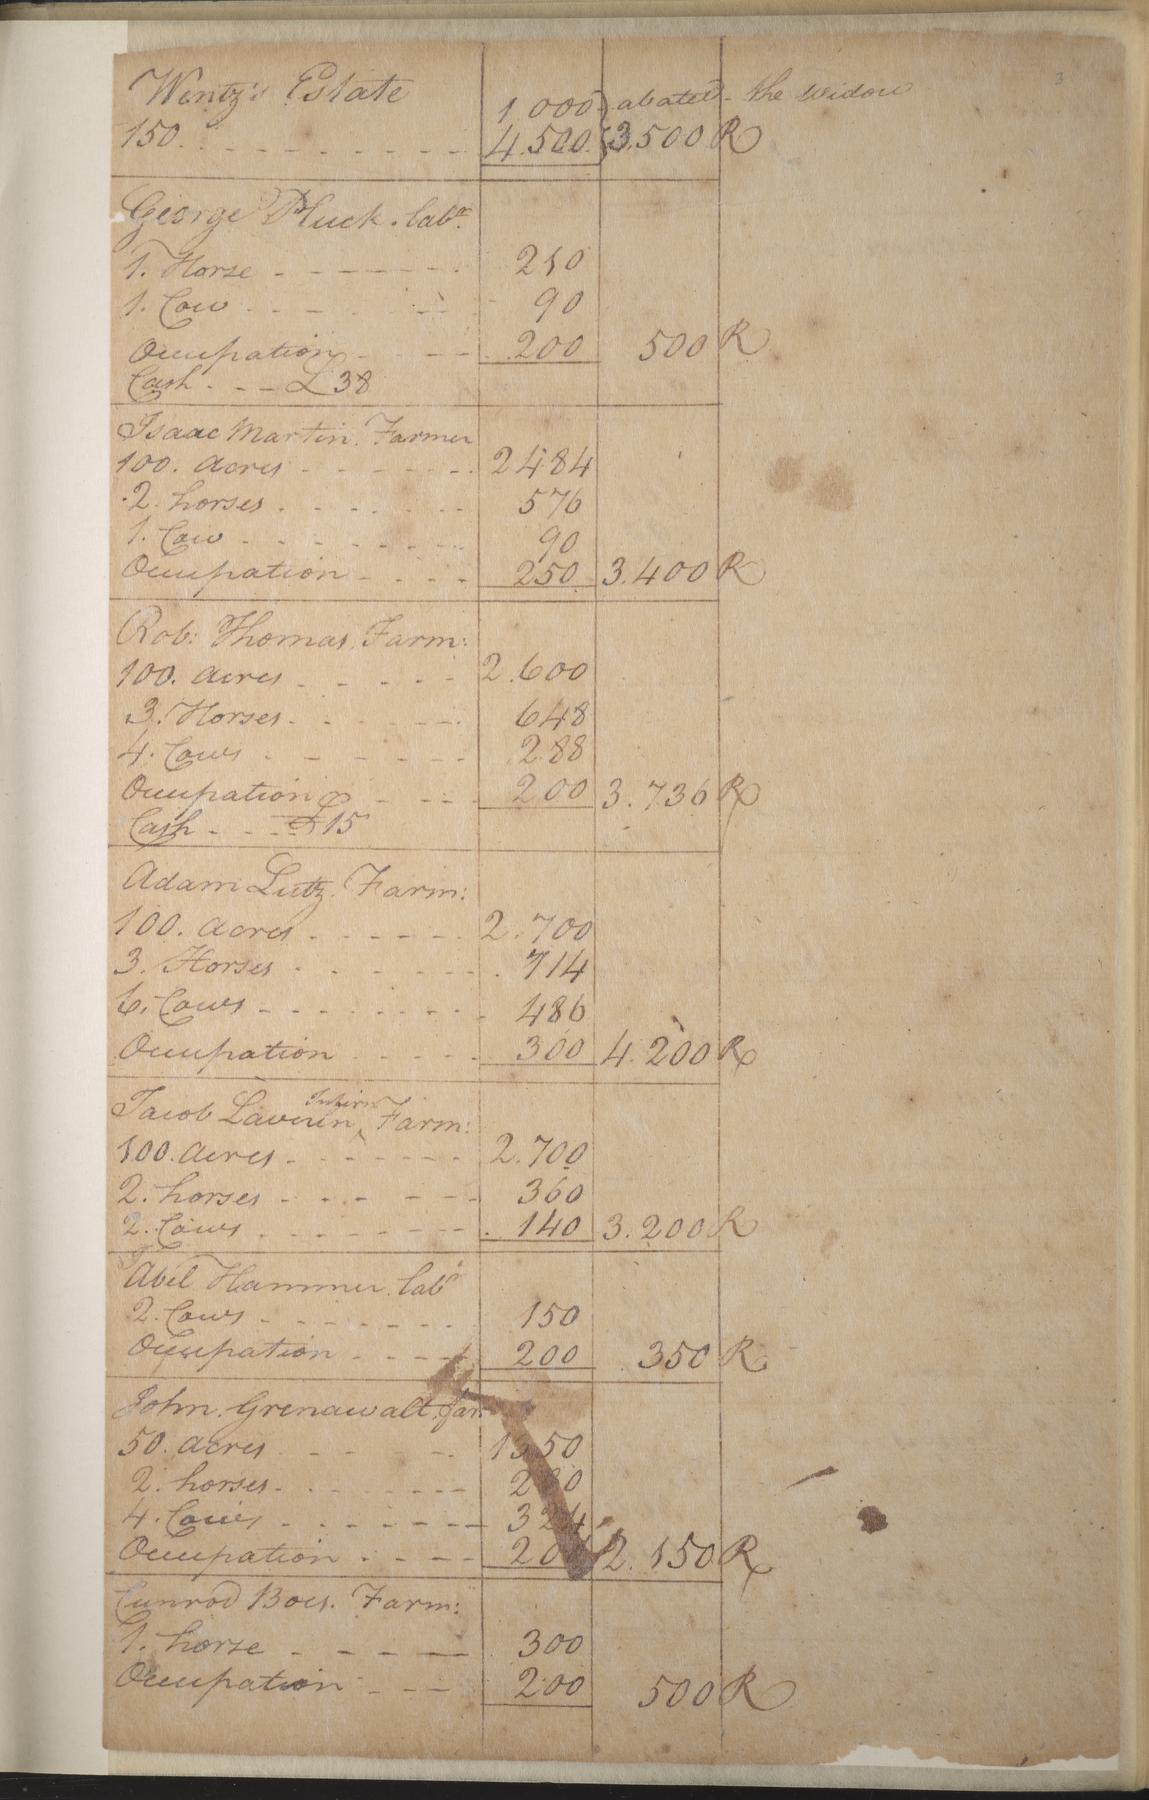 3
Wentz's Estate 1000 } abated - the widow
150. - - - - - - - - - 4.500. { 3.500 R
George Pluck. labr.
1. Horse - - - - - - - 210
1. Cow - - - - - - - 90
Occupation - - - - 200 500 R
Cash - - - £38
Isaac Martin. Farmer
100. acres - - - - - - 2484
2. horses - - - - - - 576
1. Cow - - - - - - - 90
Occupation - - - - 250 3.400 R
Rob: Thomas, Farm:
100. acres - - - - - 2.600
3. Horses - - - - - 648
4. Cows - - - - - - 288
Occupation - - - - 200 3.736 R
Cash - - - £15
Adam Lutz. Farm:
100. acres - - - - - - 2.700
3. Horses - - - - - - 714
6. Cows - - - - - - - - 486
Occupation - - - - - 300 4.200 R
Infirm
Jacob Farm:
100. acres - - - - - - - 2.700
2. horses - - - - - - 360
2. Cows - - - - - - 140 3.200 R
Abel Hammer. labr
2. Cows - - - - - - - 150
Occupation - - - - 200 350 R
John. Grenawalt. far.
50. acres - - - - 1350
2. horses - - - - - - - 280
4. Cows - - - - - - - 324
Occupation - - - - 200 2.150 R
Cunrod Farm:
1. horse - - - - - 300
Occupation - - - 200 500 R